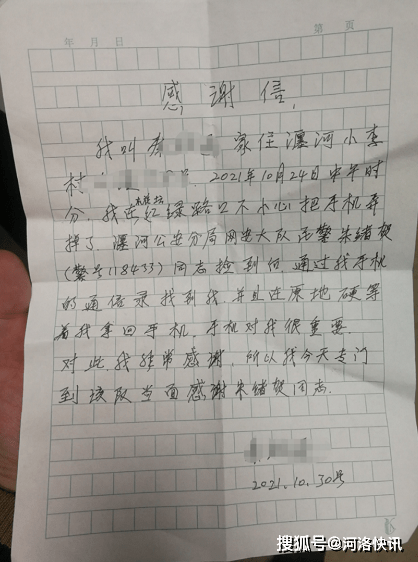 第 页
年 月 日
感 谢 信
我叫 家住瀍河小李
村 2021年10月24日中午时
分,我在红绿路口不小心把手机弄
掉了,瀍河公安分局网安大队民警朱绪贺
(警号118433)同志捡到后,通过我手机
的通信录找到我,并且在原地硬等
着我拿回手机,手机对我很重要
对此我非常感谢,所以我今天专门
到该队当面感谢朱绪贺同志.
2021.10.30号
搜狐号@河洛快讯